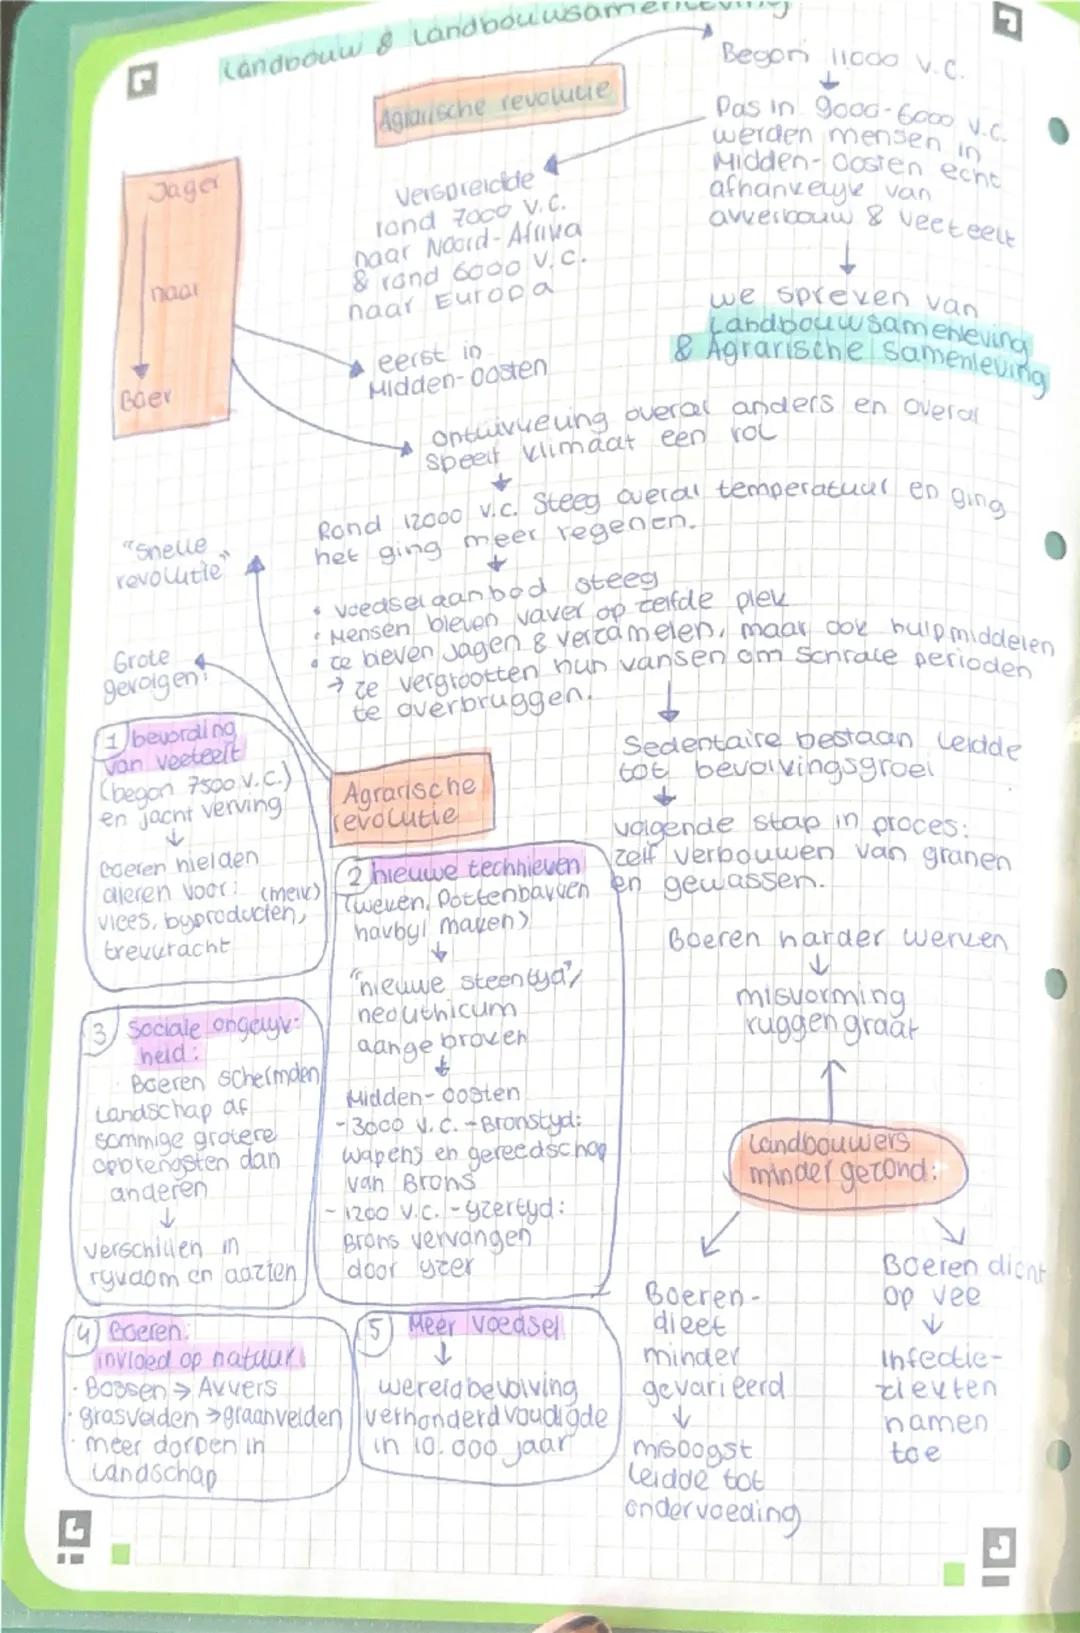 Landbouw & Landbouwsamenleving
Agrarische revolutie
Begon 11000 v.C.
Pas in 9000-6000 v.C.
werden mensen in
Midden-Oosten echt
afhankelijk van
akkerbouw & veeteelt
we spreken van
Landbouwsamenleving
& Agrarische samenleving
Verspreidde
rond 7000 v.C.
naar Noord-Afrika
& rond 6000 v.C.
naar Europa
Jager
naar
Boer
eerst in
Midden-Oosten
ontwikkeling overal anders en overal
speelt klimaat een rol
Rond 12000 v.C. steeg overal temperatuur en ging
het ging meer regenen.
• voedselaanbod steeg
• Mensen bleven vaker op zelfde plek
• ze bleven jagen & verzamelen, maar ook hulpmiddelen
→ ze vergrootten hun kansen om schrale perioden
te overbruggen.
Sedentaire bestaan leidde
tot bevolkingsgroei
volgende stap in proces:
zelf verbouwen van granen
en gewassen.
"Snelle
revolutie"
Grote
gevolgen!
Agrarische
revolutie
1 bevording
van veeteelt
(begon 7500 v.C.)
en jacht verving
Boeren hielden
dieren voor: (melk)
vlees, bijproducten,
trekkracht
2 nieuwe technieken
(weven, Pottenbakken
hakbijl maken)
"nieuwe steentijd"/
neolithicum
aangebroken
Midden-Oosten
-3000 v.C. - Bronstijd:
wapens en gereedschap
van Brons
-1200 v.C. - Ijzertijd:
Brons vervangen
door ijzer
3 Sociale ongelijk-
heid:
Boeren schermden
Landschap af
sommige grotere
opbrengsten dan
anderen
verschillen in
rijkdom en aanzien
4 Boeren:
invloed op natuur
· Bossen → Akkers
· grasvelden → graanvelden
· meer dorpen in
Landschap
5 Meer voedsel
wereldbevolking
verhonderdvoudigde
in 10.000 jaar
Boeren harder werken
misvorming
ruggengraat
Landbouwers
minder gezond:
Boeren-
dieet
minder
gevarieerd
misoogst
leidde tot
ondervoeding
Boeren dicht
op vee
infectie-
ziekten
namen
toe